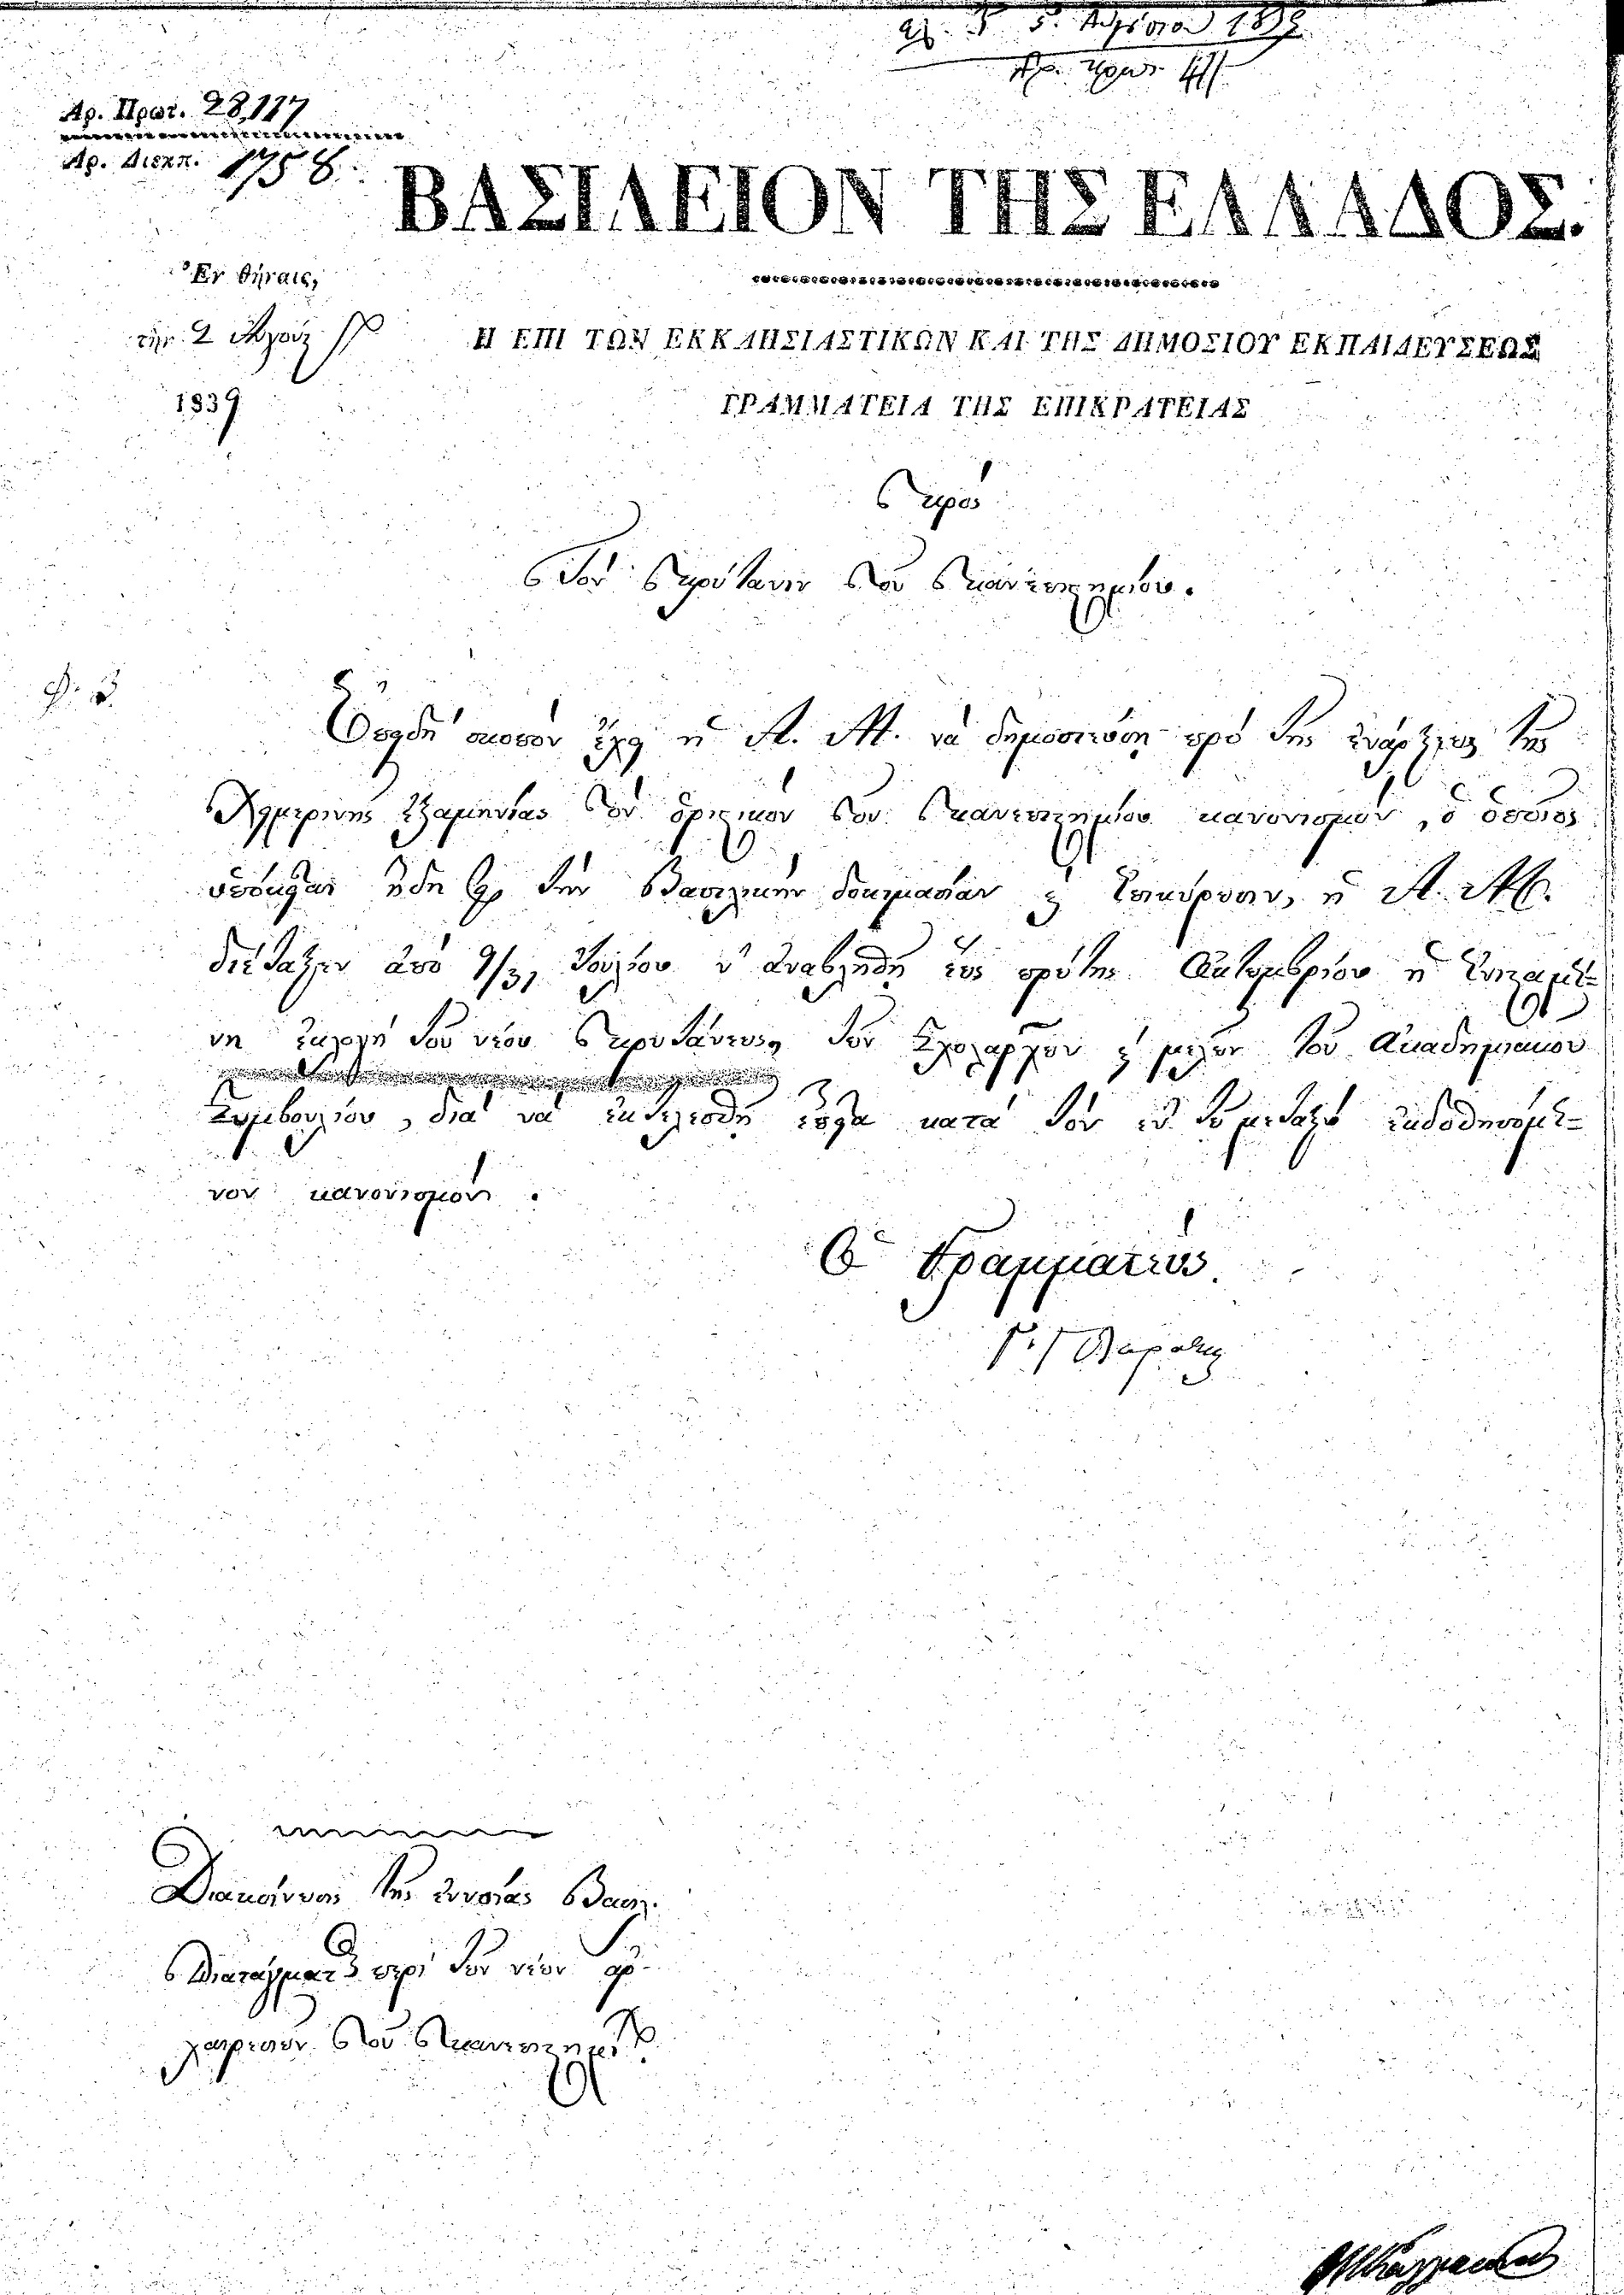 5. Αὐγούστου 1839
Ἀρ. Πρωτ.
Αρ. Πρωτ. 28,117
Αρ. Διεκπ. 1758.
ΒΑΣΙΛΕΙΟΝ ΤΗΣ ΕΛΛΑΔΟΣ.
Ἐν Ἀθήναις,
τὴν 2 Αὐγούστου
1839
Η ΕΠΙ ΤΩΝ ΕΚΚΛΗΣΙΑΣΤΙΚΩΝ ΚΑΙ ΤΗΣ ΔΗΜΟΣΙΟΥ ΕΚΠΑΙΔΕΥΣΕΩΣ
ΓΡΑΜΜΑΤΕΙΑ ΤΗΣ ΕΠΙΚΡΑΤΕΙΑΣ
Πρὸς
Τὸν Πρύτανιν τοῦ Πανεπιστημίου.
Ἐπειδὴ σκοπὸν ἔχει ἡ Α. Μ. νὰ δημοσιεύσῃ πρὸ τῆς ἐνάρξεως τῆς
Χειμερινῆς ἑξαμηνίας τὸν ὁριστικὸν τοῦ Πανεπιστημίου κανονισμὸν, ὁ ὁποῖος
ὑπόκειται ἤδη εἰς τὴν Βασιλικὴν δοκιμασίαν καὶ ἐπικύρωσιν, ἡ Α. Μ.
διέταξεν ἀπὸ 9/31 Ἰουλίου ν' ἀναβληθῇ ἕως πρώτης Ὀκτωμβρίου ἡ
νη ἐκλογὴ τοῦ νέου Πρυτάνεως, τῶν Σχολαρχῶν καὶ μελῶν τοῦ Ἀκαδημαϊκοῦ
Συμβουλίου, διὰ νὰ ἐκτελεσθῇ κατὰ τὸν ἐν τῷ μεταξὺ ἐκδοθησόμε-
νον κανονισμόν.
Ὁ Γραμματεὺς
Διακοίνωσις τῆς ἐννοίας Βασιλ.
Διατάγματος περὶ τῶν νέων ἀρ-
χαιρεσιῶν τοῦ Πανεπιστημίου